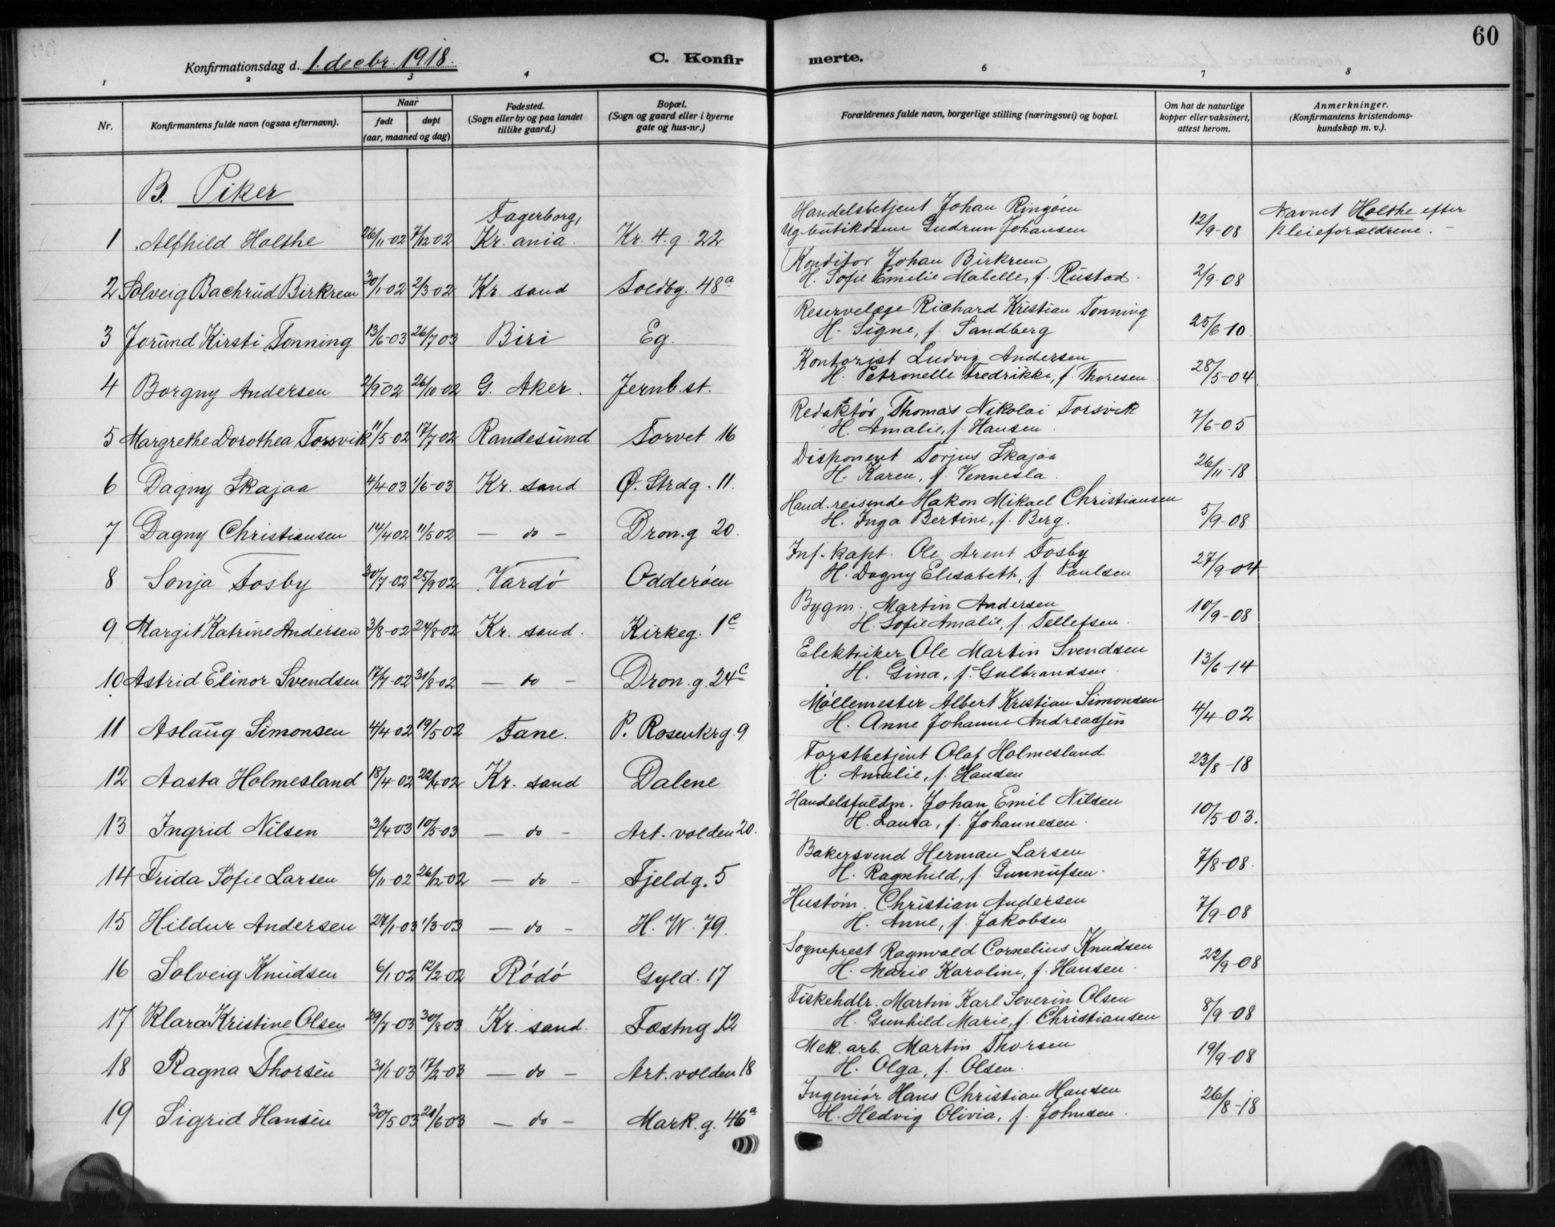 60
Konfirmationsdag d. 1. decbr. 1918.
C. Konfirmerte.
1 2 3 4 6 7 8
Nr.
Konfirmantens fulde navn (ogsaa efternavn).
Naar
født døpt
(aar, maaned og dag)
Fødested.
(Sogn eller by og paa landet
tillike gaard.)
Bopæl.
(Sogn og gaard eller i byerne
gate og hus-nr.)
Forældrenes fulde navn, borgerlige stilling (næringsvei) og bopæl.
Om hat de naturlige
kopper eller vaksinert,
attest herom.
Anmerkninger.
(Konfirmantens kristendoms-
kundskap m. v.).
B. Piker
1 Alfhild Holthe 26/11-02 7/12 02 Fagerborg, Kr.ania. Kr. 4. g. 22 Handelsbetjent Johan Ringøen 12/9-08 Navnet Holthe efter
Ug. butikdame Gudrun Johansen pleieforældrene. -
2 Solveig Bachrud Birkrem 30/1-02 2/3-02 Kr. sand Toldbg. 48a Konditor Johan Birkrem 2/9-08
H. Sofie Emilie Mabelle, f. Rustad.
3 Jorund Kirsti Tonning 13/6-03 26/7 03 Biri Eg. Reservelæge Richard Kristian Tonning 25/6-10
H. Signe, f. Sandberg
4 Borgny Andersen 2/9-02 26/10 02 G. Aker. Jernb. st. Kontorist Ludvig Andersen 28/5-04
H. Petronelle Fredrikke, f. Thoresen
5 Margrethe Dorothea Torsvik 11/5-02 17/7-02 Randesund Torvet 16 Redaktør Thomas Nikolai Torsvik 7/6-05
H. Amalie, f. Hansen.
6 Dagny Skajaa 4/4-03 1/6-03 Kr. sand Ø. Strdg. 11. Disponent Torjus Skajaa 26/11-18
H. Karen, f. Vennesla.
7 Dagny Christiansen 14/4 02 11/5 02 - do - Dron. g 20. Hand. reisende Hakon Mikael Christiansen 5/9-08
H. Inga Bertine, f. Berg.
8 Sonja Fosby 30/7-02 25/9 02 Vardø Odderøen Inf. kapt. Ole Arent Fosby 27/9-04
H. Dagny Elisabeth, f. Paulsen
9 Margit Katrine Andersen 3/8-02 24/8-02 Kr. sand. Kirkeg. 1c Bygm. Martin Andersen 10/9-08
H. Sofie Amalie, f. Tellefsen.
10 Astrid Elinor Svendsen 17/7-02 31/8-02 - do - Dron. g. 24c Elektriker Ole Martin Svendsen 13/6-14
H. Gina, f. Gulbrandsen.
11 Aslaug Simonsen 4/4-02 19/5-02 Fane. P. Rosenkrg. 9 Møllemester Albert Kristian Simonsen 4/4-02
H. Anne Johanne
12 Aasta Holmesland 18/4-02 22/4-02 Kr. sand Dalene Forstbetjent Olaf Holmesland 23/8-18
H. Amalie, f. Hansen
13 Ingrid Nilsen 3/4-03 10/5-03 - do - Art. volden 20. Handelsfuldm. Johan Emil Nilsen 10/5-03.
H. Laura, f. Johannesen.
14 Frida Sofie Larsen 6/11-02 26/12-02 - do - Fjeldg. 5 Bakersvend Herman Larsen 7/8-08.
H. Ragnhild, f. Gunnufsen.
15 Hildur Andersen 27/1-03 1/3-03 - do - H. W. 79. Hustøm. Christian Andersen 7/9-08
H. Anne, f. Jakobsen
16 Solveig Knudsen 6/1-02 12/2-02 Rødø Gyld. 17 Sogneprest Ragnvald Cornelius Knudsen 22/9-08
H. Marie Karoline, f. Hansen.
17 Klara Kristine Olsen 29/7-03 30/8-03 Kr. sand. Fæstng 12 Fiskehdlr. Martin Karl Severin Olsen 8/9-08
H. Gunhild Marie, f. Christiansen
18 Ragna Thorsen 31/1-03 17/2-03 - do - Art. volden 18 Mek. arb. Martin Thorsen 19/9-08
H. Olga, f. Olsen.
19 Sigrid Hansen 30/5 03 21/6 03 - do - Mark. g. 46a Ingeniør Hans Christian Hansen 26/8-18
H. Hedvig Olivia, f. Johnsen.